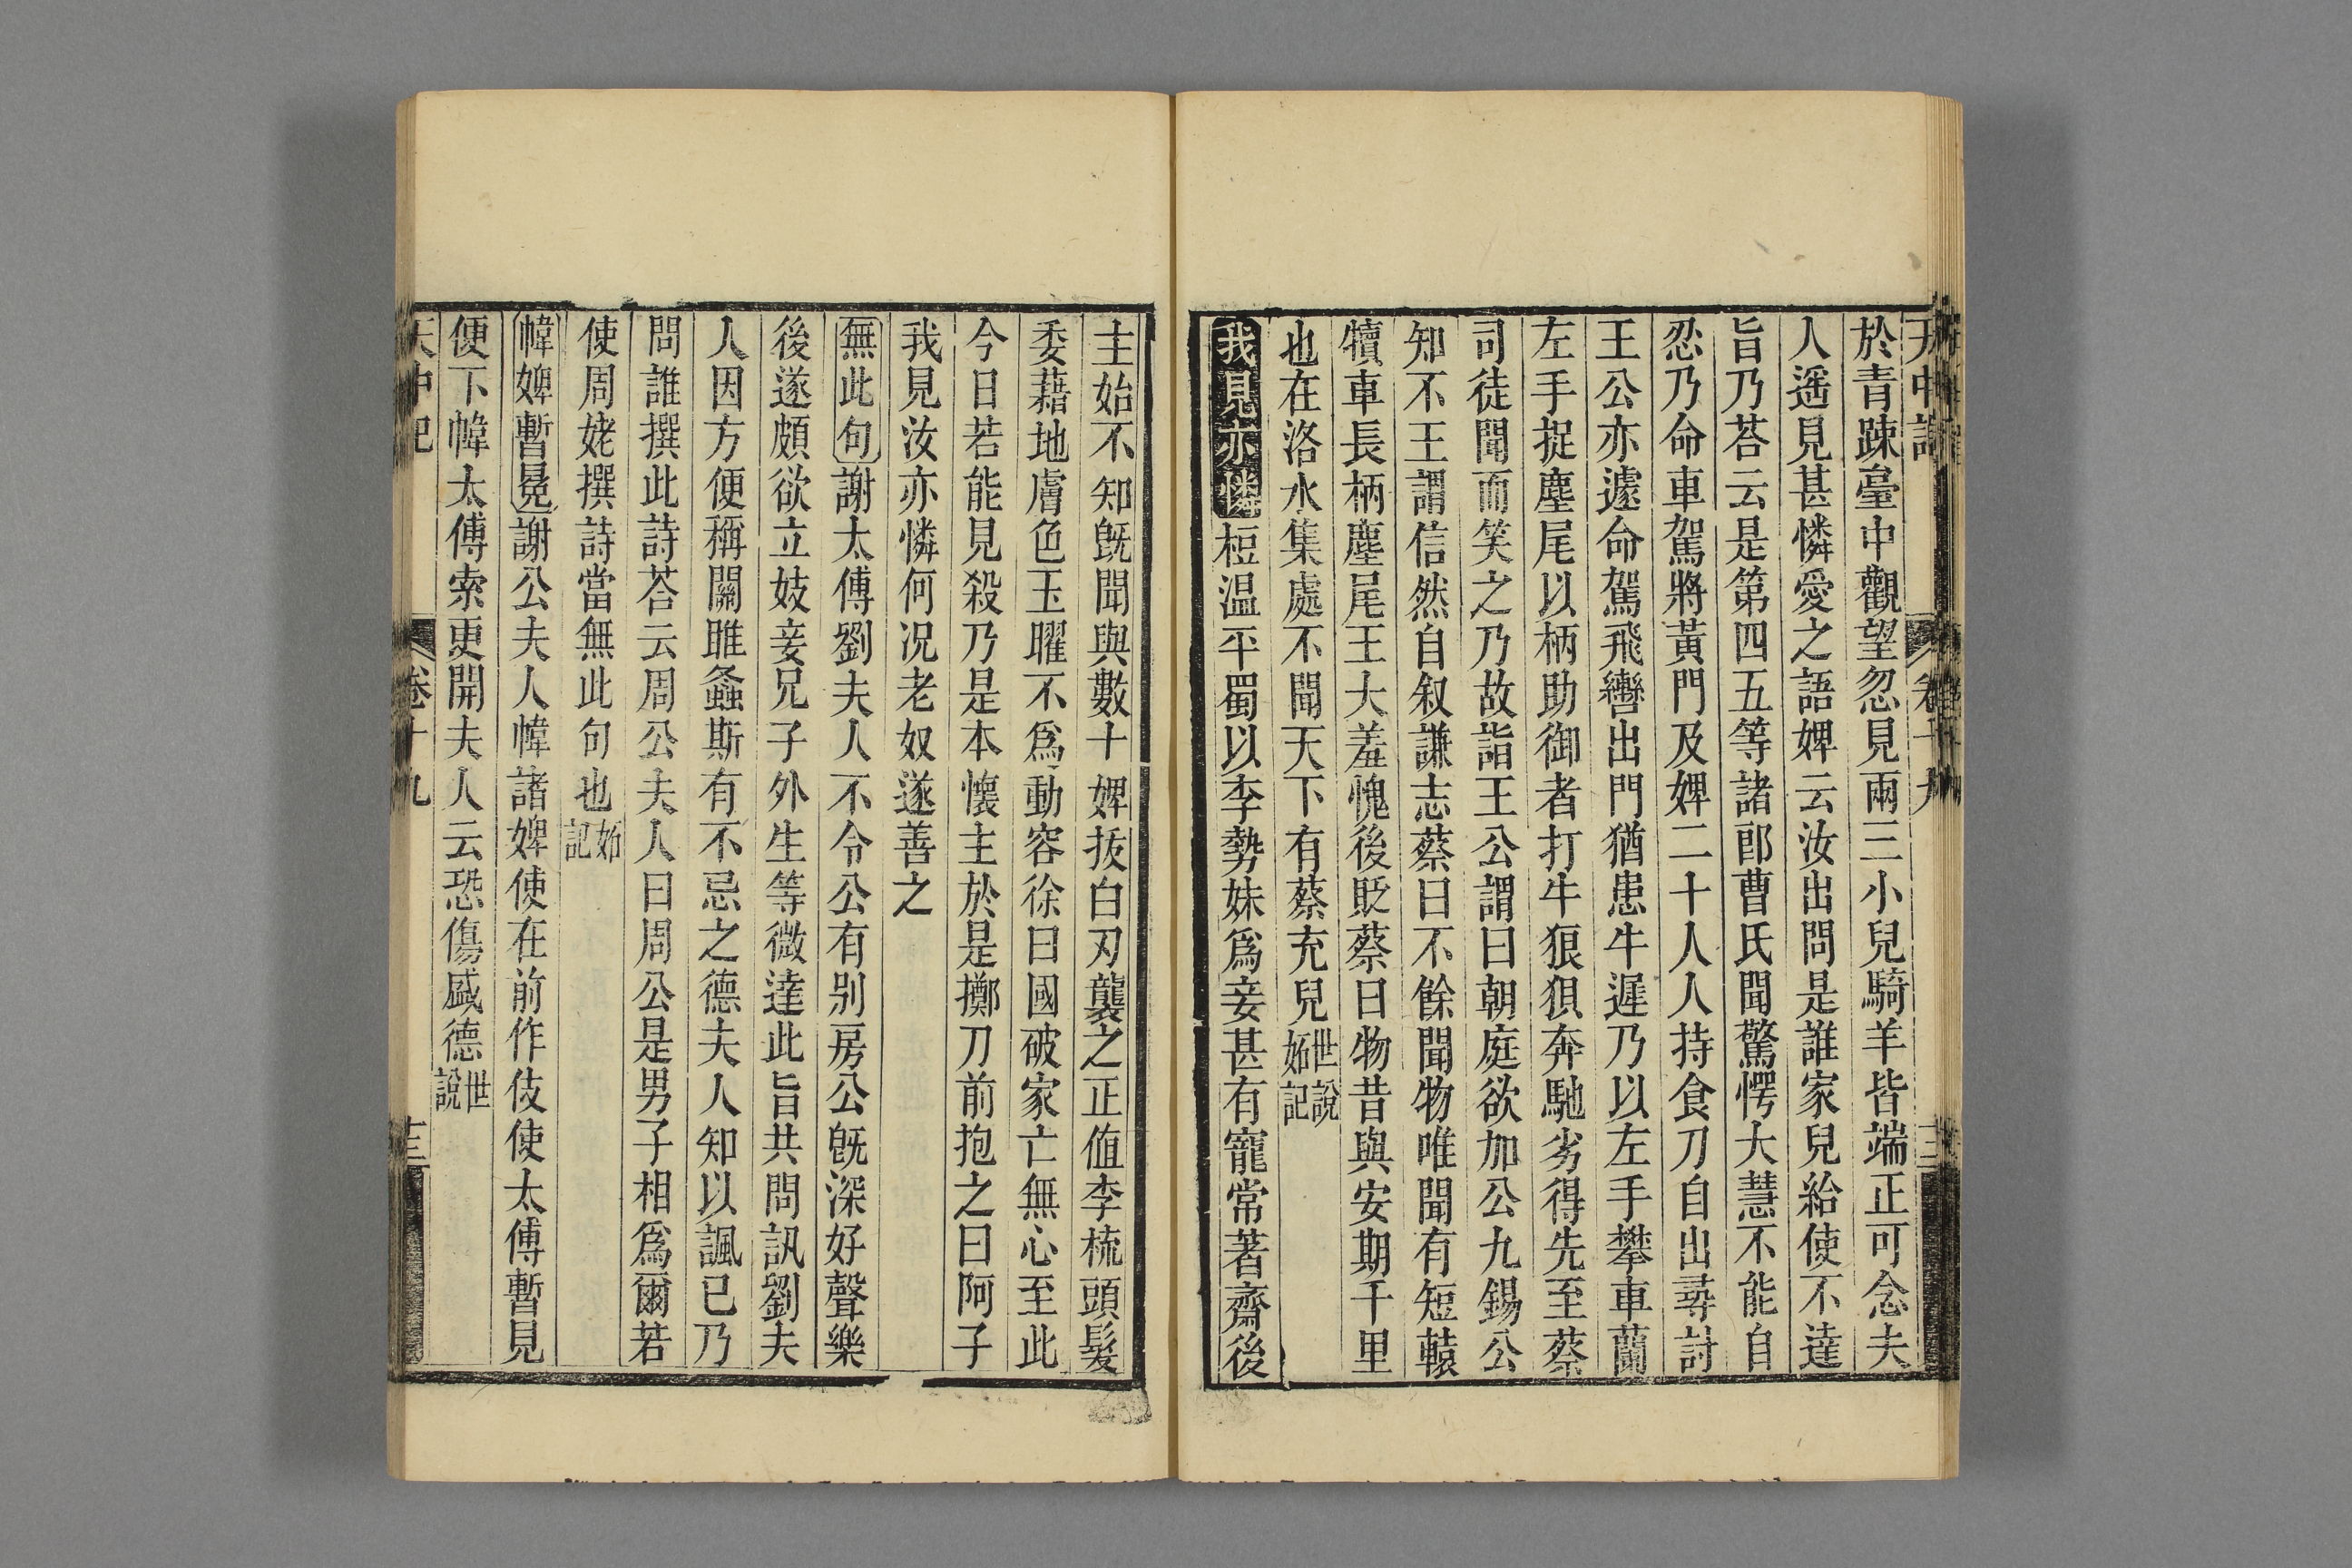 於青踈臺中觀望忽見兩三小兒騎羊皆端正可念夫
人遥見甚憐愛之語婢云汝出問是誰家兒給使不達
旨乃荅云是第四五等諸郎曹氏聞驚愕大慧不能自
忍乃命車駕將黃門及婢二十人人持食刀自出尋討
王公亦遽命駕飛轡出門猶患牛遲乃以左手攀車蘭
左手捉塵尾以柄助御者打牛狼狽奔馳劣得先至蔡
司徒聞而笑之乃故詣王公謂曰朝庭欲加公九錫公
知不王謂信然自叙謙志蔡曰不餘聞物唯聞有短轅
犢車長柄塵尾王大羞愧後貶蔡曰物昔與安期千里
也在洛水集處不聞天下有蔡充兒世說妬記
我見亦憐桓温平蜀以李勢妹爲妾甚有寵常著齋後
主始不知旣聞與數十婢拔白刃襲之正值李梳頭髮
委藉地膚色玉曜不爲動容徐曰國破家亡無心至此
今日若能見殺乃是本懷主於是擲刀前抱之曰阿子
我見汝亦憐何况老奴遂善之
無此句謝太傅劉夫人不令公有别房公旣深好聲樂
後遂頗欲立妓妾兄子外生等微達此旨共問訊劉夫
人因方便稱關雎螽斯有不忌之德夫人知以諷已乃
問誰撰此詩荅云周公夫人曰周公是男子相爲爾若
使周姥撰詩當無此句也妬記
幃婢暫見謝公夫人幃諸婢使在前作伎使太傅暫見
便下幃太傅索更開夫人云恐傷盛德世說
天中記 卷十九 十三